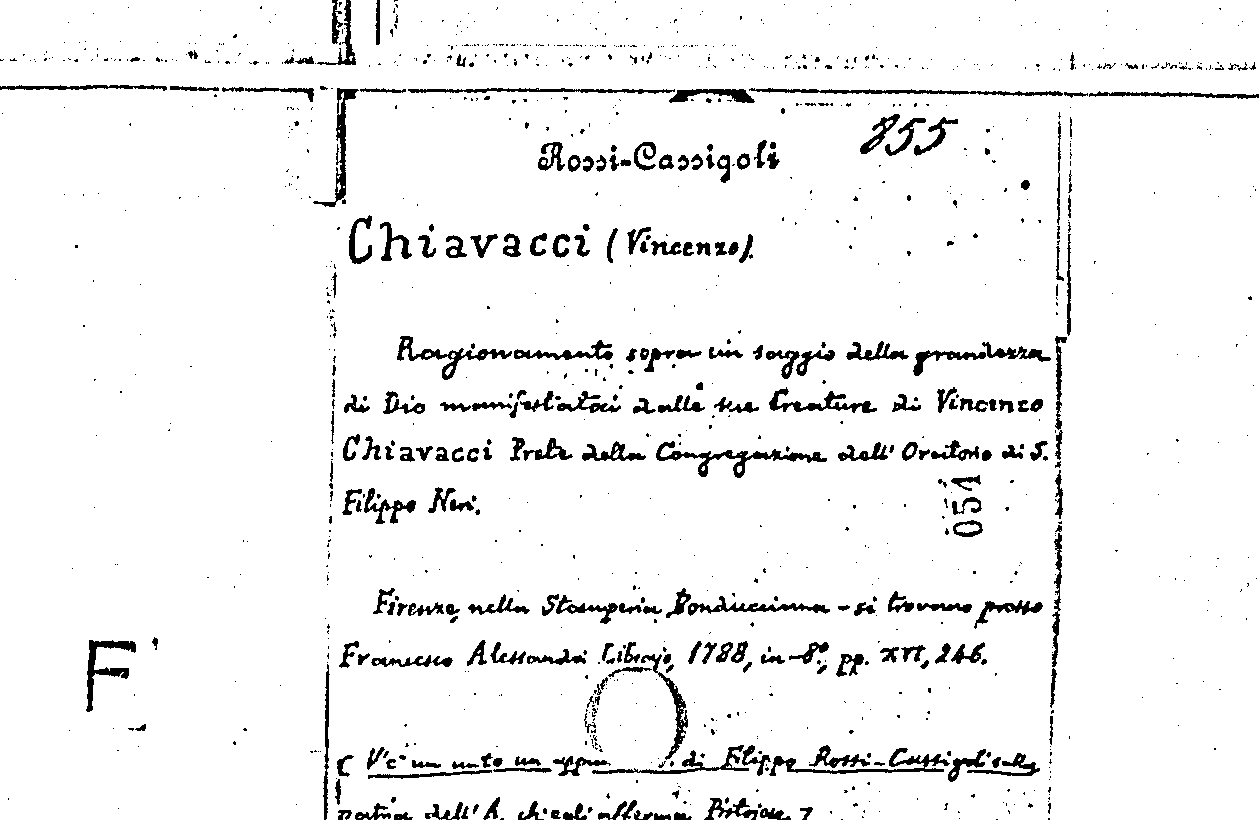 855
Rossi-Cassigoli
Chiavacci (Vincenzo).
Ragionamento sopra un saggio della grandezza
di Dio manifestataci dalle sue Creature di Vincenzo
Chiavacci Prete della Congregazione dell' Oratorio di S.
Filippo Neri.
051
Firenze, nella Stamperia Bonducciana - si trovano presso
Francesco Alessandri Librajo, 1788, in-8º, pp. XVI, 246.
F
[ V'è un di Filippo Rossi-Cassigoli sulla
patria dell' A. ch'egli afferma Pistojese. ]